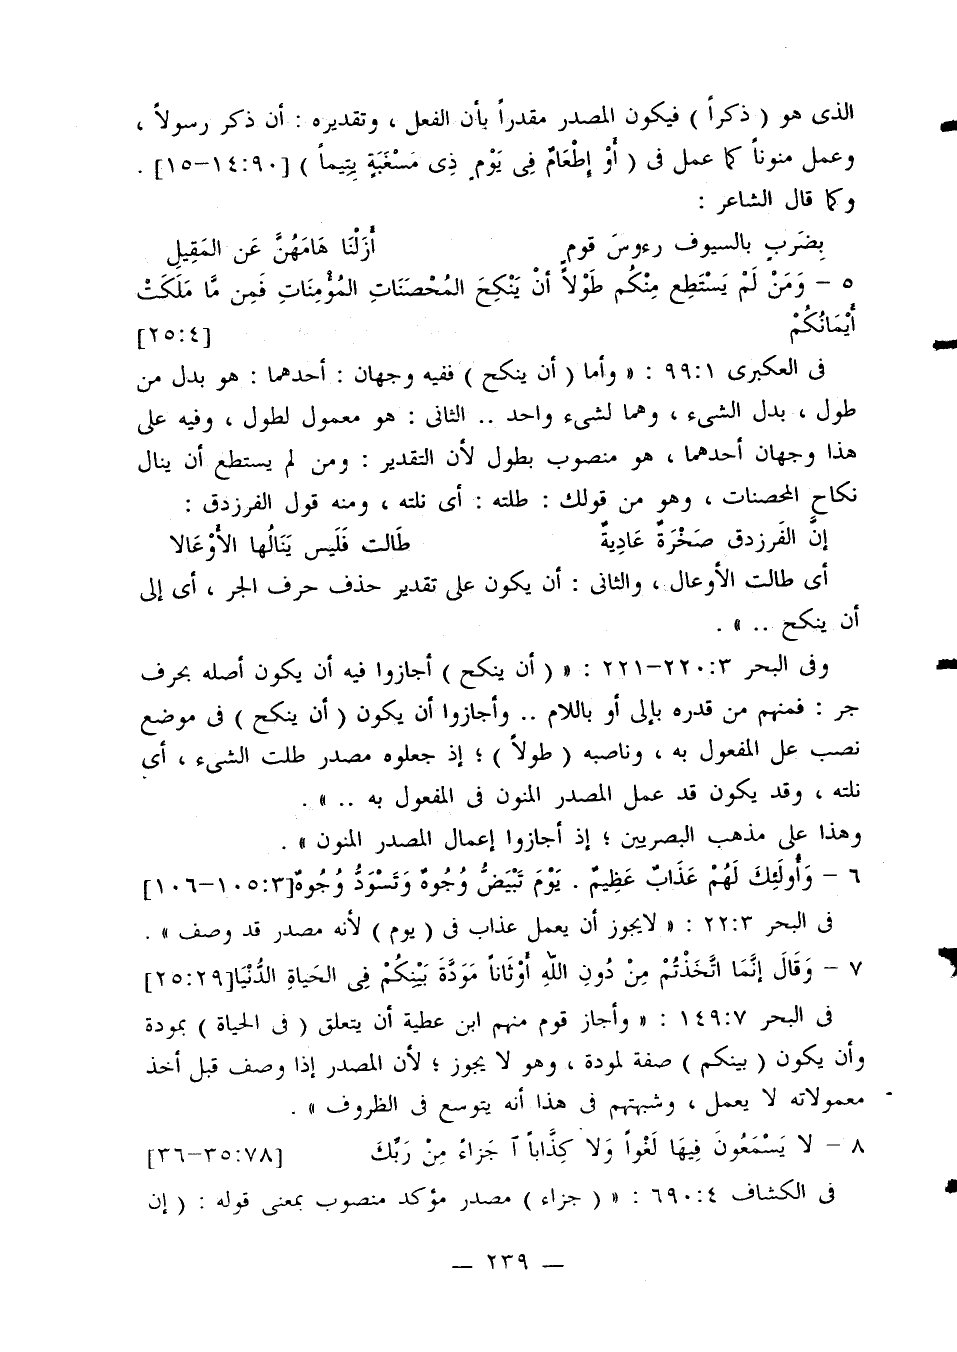 الذى هو ( ذكراً ) فيكون المصدر مقدراً بأن الفعل ، وتقديره : أن ذكر رسولاً ،
وعمل منوناً كما عمل فى ( أَوْ إِطْعَامٌ فِى يَوْمٍ ذِى مَسْغَبَةٍ يَتِيماً ) [١٤:٩٠–١٥] .
وكما قال الشاعر :
بِضَربٍ بالسيوف رءوسَ قومٍ أَزَلْنَا هَامَهُنَّ عَن المَقِيلِ
٥ – وَمَنْ لَمْ يَسْتَطِع مِنْكُم طَوْلاً أنْ يَنْكِحَ المُحْصَنَاتِ المُؤْمِنَاتِ فَمِن مَّا مَلَكَتْ
أَيْمَانُكُمْ [٢٥:٤]
فى العكبرى ٩٩:١ : « وأما ( أن ينكح ) ففيه وجهان : أحدهما : هو بدل من
طول ، بدل الشىء ، وهما لشىء واحد .. الثانى : هو معمول لطول ، وفيه على
هذا وجهان أحدهما ، هو منصوب بطول لأن التقدير : ومن لم يستطع أن ينال
نكاح المحصنات ، وهو من قولك : طلته : أى نلته ، ومنه قول الفرزدق :
إنَّ الفَرزدق صَخْرَةٌ عَادِيةٌ طَالت فَلَيس يَنَالُها الأَوْعَالا
أى طالت الأوعال ، والثانى : أن يكون على تقدير حذف حرف الجر ، أى إلى
أن ينكح .. » .
وفى البحر ٢٢٠:٣–٢٢١ : « ( أن ينكح ) أجازوا فيه أن يكون أصله بحرف
جر : فمنهم من قدره بإلى أو باللام .. وأجازوا أن يكون ( أن ينكح ) فى موضع
نصب عل المفعول به ، وناصبه ( طولاً ) ؛ إذ جعلوه مصدر طلت الشىء ، أى
نلته ، وقد يكون قد عمل المصدر المنون فى المفعول به .. » .
وهذا على مذهب البصريين ؛ إذ أجازوا إعمال المصدر المنون » .
٦ – وَأُولَئِكَ لَهُمْ عَذَابٌ عَظِيمٌ . يَوْمَ تَبْيَضُّ وُجُوهٌ وَتَسْوَدُّ وُجُوهٌ[١٠٥:٣–١٠٦]
فى البحر ٢٢:٣ : « لايجوز أن يعمل عذاب فى ( يوم ) لأنه مصدر قد وصف » .
٧ – وَقَالَ إنَّمَا اتَّخَذْتُمْ مِنْ دُونِ اللهِ أَوْثَاناً مَوَدَّةَ بَيْنِكُمْ فِى الحَياةِ الدُّنْيَا[٢٥:٢٩]
فى البحر ١٤٩:٧ : « وأجاز قوم منهم ابن عطية أن يتعلق ( فى الحياة ) بمودة
وأن يكون ( بينكم ) صفة لمودة ، وهو لا يجوز ؛ لأن المصدر إذا وصف قبل أخذ
معمولاته لا يعمل ، وشبهتهم فى هذا أنه يتوسع فى الظروف » .
٨ – لا يَسْمَعُونَ فِيهَا لَغْواً وَلا كِذَّاباً ٱ جَزاءً مِنْ رَبِّكَ [٣٥:٧٨–٣٦]
فى الكشاف ٦٩٠:٤ : « ( جزاء ) مصدر مؤكد منصوب بمعنى قوله : ( إن
— ٢٣٩ —